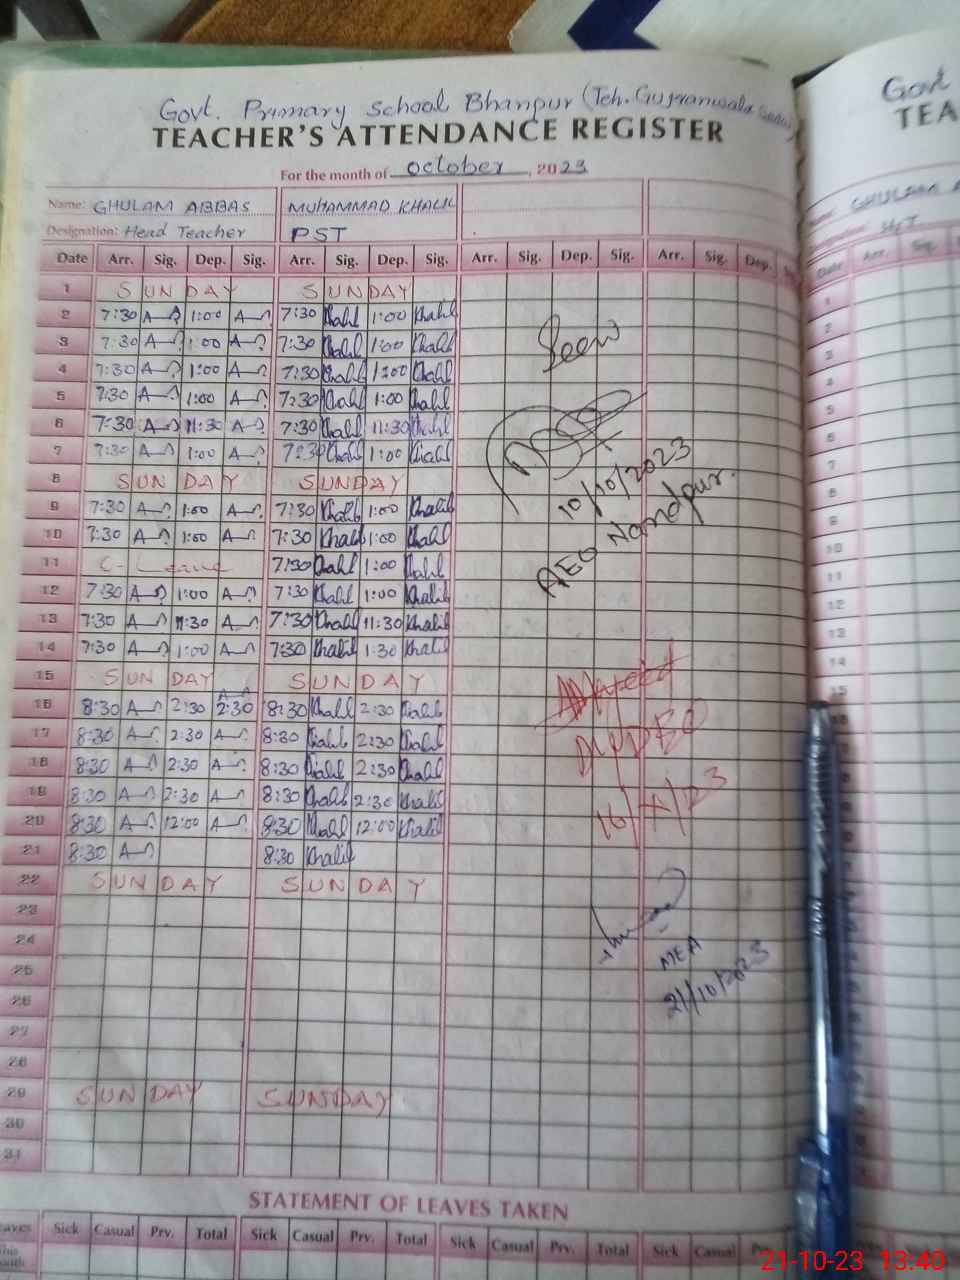 Govt. Primary School Bhanpur (Teh. Gujranwala
TEACHER'S ATTENDANCE REGISTER
For the month of October, 2023
Name: GHULAM ABBAS MUHAMMAD KHALIL
Designation: Head Teacher PST
Date Arr. Sig. Dep. Sig. Arr. Sig. Dep. Sig. Arr. Sig. Dep. Sig. Arr. Sig. Dep.
1 SUNDAY SUNDAY
2 7:30 1:00 7:30 Khalil 1:00 Khalil
3 7:30 1:00 7:30 Khalil 1:00 Khalil
4 7:30 1:00 7:30 Khalil 1:00 Khalil
5 7:30 1:00 7:30 Khalil 1:00 Khalil
6 7:30 11:30 7:30 Khalil 11:30 Khalil
7 7:30 1:00 7:30 Khalil 1:00 Khalil
8 SUNDAY SUNDAY
9 7:30 1:00 7:30 Khalil 1:00 Khalil
10 7:30 1:00 7:30 Khalil 1:00 Khalil
11 C-Leave 7:30 Khalil 1:00 Khalil
12 7:30 1:00 7:30 Khalil 1:00 Khalil
13 7:30 11:30 7:30 Khalil 11:30 Khalil
14 7:30 1:00 7:30 Khalil 1:30 Khalil
15 SUNDAY SUNDAY
16 8:30 2:30 2:30 8:30 Khalil 2:30 Khalil
17 8:30 2:30 8:30 Khalil 2:30 Khalil
18 8:30 2:30 8:30 Khalil 2:30 Khalil
19 8:30 2:30 8:30 Khalil 2:30 Khalil
20 8:30 12:00 8:30 Khalil 12:00 Khalil
21 8:30 8:30 Khalil
22 SUNDAY SUNDAY
23
24
25
26
27
28
29 SUNDAY SUNDAY
30
31
Seen
10/10/2023
AEO Nandpur.
MEA
21/10/2023
STATEMENT OF LEAVES TAKEN
Sick Casual Prv. Total Sick Casual Prv. Total Sick Casual Prv. Total Sick Casual
Govt
TEA
GHULAM A
Date Arr. Sig.
1
2
3
4
5
6
7
8
9
10
11
12
13
14
15
21-10-23 13:40